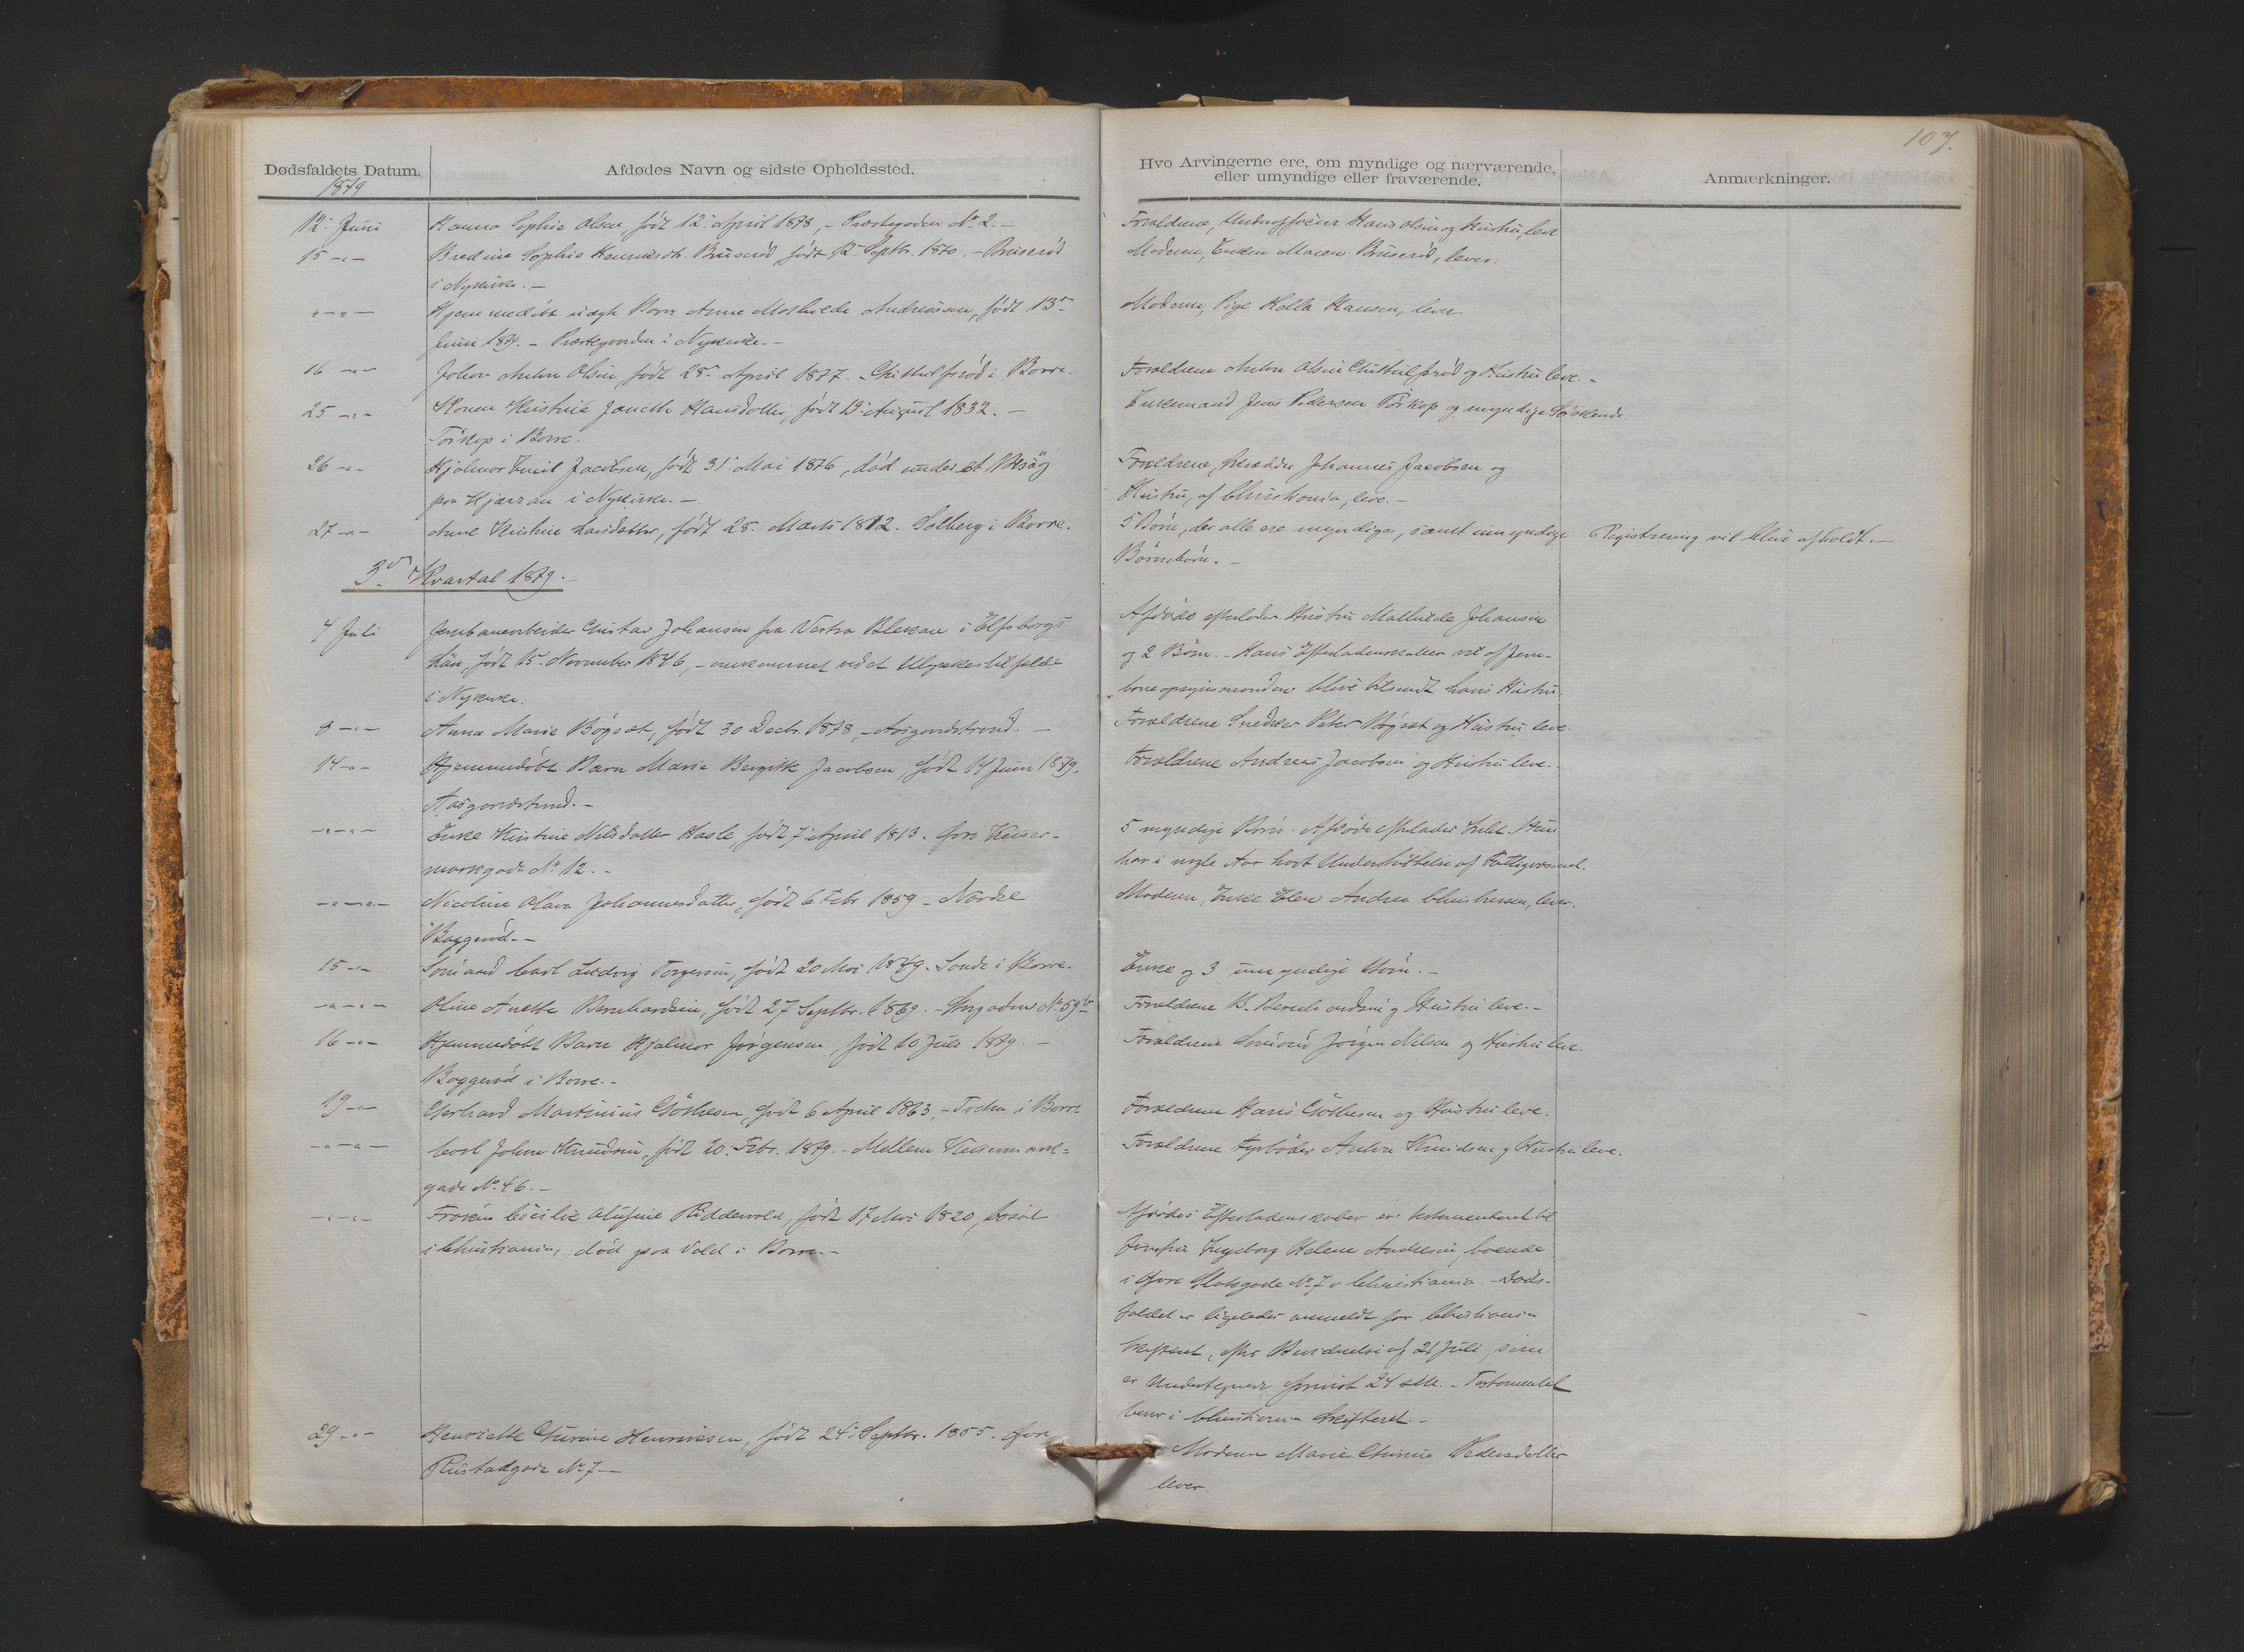 107.
Dødsfaldets Datum.
Afdødes Navn og sidste Opholdssted.
Hvo Arvingerne ere, om myndige og nærværende,
eller umyndige eller fraværende.
Anmærkninger.
1879
12. Juni
Hanna Sophie Olsen, født 12. April 1878, - Præstegaden No 2. -
Forældrene, Underofficier Hans Olsen og Hustru, leve
15 -"-
Bredine Sophie Henriksdtr. Buserød, født 12. Septbr. 1870. - Buserød
i Nykirke. -
Moderen, Enken Maren Buserød, lever.
-"-"-
Hjemmedøbt uægte Barn Anne Mathilde Andreassen, født 13
Juni 1879. - Præstegaarden i Nykirke. -
Moderen, Pige Helle Hansen, lever.
16 -"-
Johan Anton Olsen, født 28. April 1877. - i Borre.
Forældrene Anton Olsen og Hustru leve. -
25 -"-
Konen Kristine Janette Hansdatter, født 13. August 1832. -
Torkop i Borre.
Enkemand Jens Pedersen Torkop og myndige Søskende.
26 -"-
Hjalmar Emil Jacobsen, født 31. Mai 1876, død under et Besøg
paa Hjærran i Nykirke. -
Forældrene, Skrædder Johannes Jacobsen og
Hustru, af Christiania, leve. -
27 -"-
Anne Kristine Larsdatter, født 28. Marts 1812. Solberg i Borre.
5 Børn, der alle ere myndige, samt umyndige
Børnebørn. -
Registrering vil blive afholdt. -
3. Kvartal 1879. -
4 Juli
Jernbanearbeider Gustav Johansen fra Vestra Blekan i Elfsborgs
Län, født 15. November 1846, - omkommet ved et Ulykkestilfælde
i Nykirke.
Afdøde efterlader Hustru Mathilde Johansen
og 2 Børn. - Hans Efterladenskaber vil af Jern-
baneopsynsmanden blive tilsendt hans Hustru.
8 -"-
Anna Marie Bøgset, født 30 Decbr. 1878, - Aasgaardstrand. -
Forældrene Snedker Peter Bøgset og Hustru leve.
14 -"-
Hjemmedøbt Barn Marie Bergitte Jacobsen, født 14 Juni 1879.
Aasgaardstrand. -
Forældrene Andreas Jacobsen og Hustru leve.
-"-"-
Enke Kristine Nilsdatter Hasle, født 7. April 1813. Øvre Keiser-
marksgade No 12. -
5 myndige Børn. Afdøde efterlader Intet. Hun
har i nogle Aar havt Understøttelse af Fattigvæsenet.
-"-"-
Nicoline Olava Johannesdatter, født 6 Febr. 1859 - Nordre
Baggerød. -
Moderen, Enke Elen Andrea Christensen, lever.
15 -"-
Sømand Carl Ludvig Torgersen, født 20 Mai 1849. Sande i Borre.
Enke og 3 umyndige Børn. -
-"-"-
Oline Anette Bernhardsen, født 27 Septbr. 1869. - Storgaden No 59b
Forældrene B. Bernhardsen og Hustru leve. -
16 -"-
Hjemmedøbt Barn Hjalmar Jørgensen, født 10 Juli 1879. -
Baggerød i Borre. -
Forældrene Sømand Jørgen Nilsen og Hustru leve.
19 -"-
Gerhard Martinius Gøthesen, født 6 April 1863, - i Borre
Forældrene Hans Gøthesen og Hustru leve.
-"-"-
Carl Johan Knudsen, født 20. Febr. 1879. - Mellem Keisermark-
gade No. 46. -
Forældrene Fyrbøder Anton Knudsen og Hustru leve.
-"-"-
Frøken Cecilie Riddervold, født 17 Mai 1820, bosat
i Christiania, død paa Vold i Borre. -
Afdødes Efterladenskaber er testamenteret til
Jomfru Ingeborg Helene Andresen, boende
i Øvre Slotsgade No 7 i Christiania. - Døds-
faldet er ligeledes anmeldt for Christiania
Skifteret, efter af 21 Juli, som
er Undertegnede forevist 24 s.M. - Testamentet
beror i Christiania Skifteret. -
29 -"-
Henriette Gurine Henriksen, født 24. Septbr. 1855. Øvre
Rustadgade No 7 -
Moderen Marie Gurine Pedersdatter
lever.